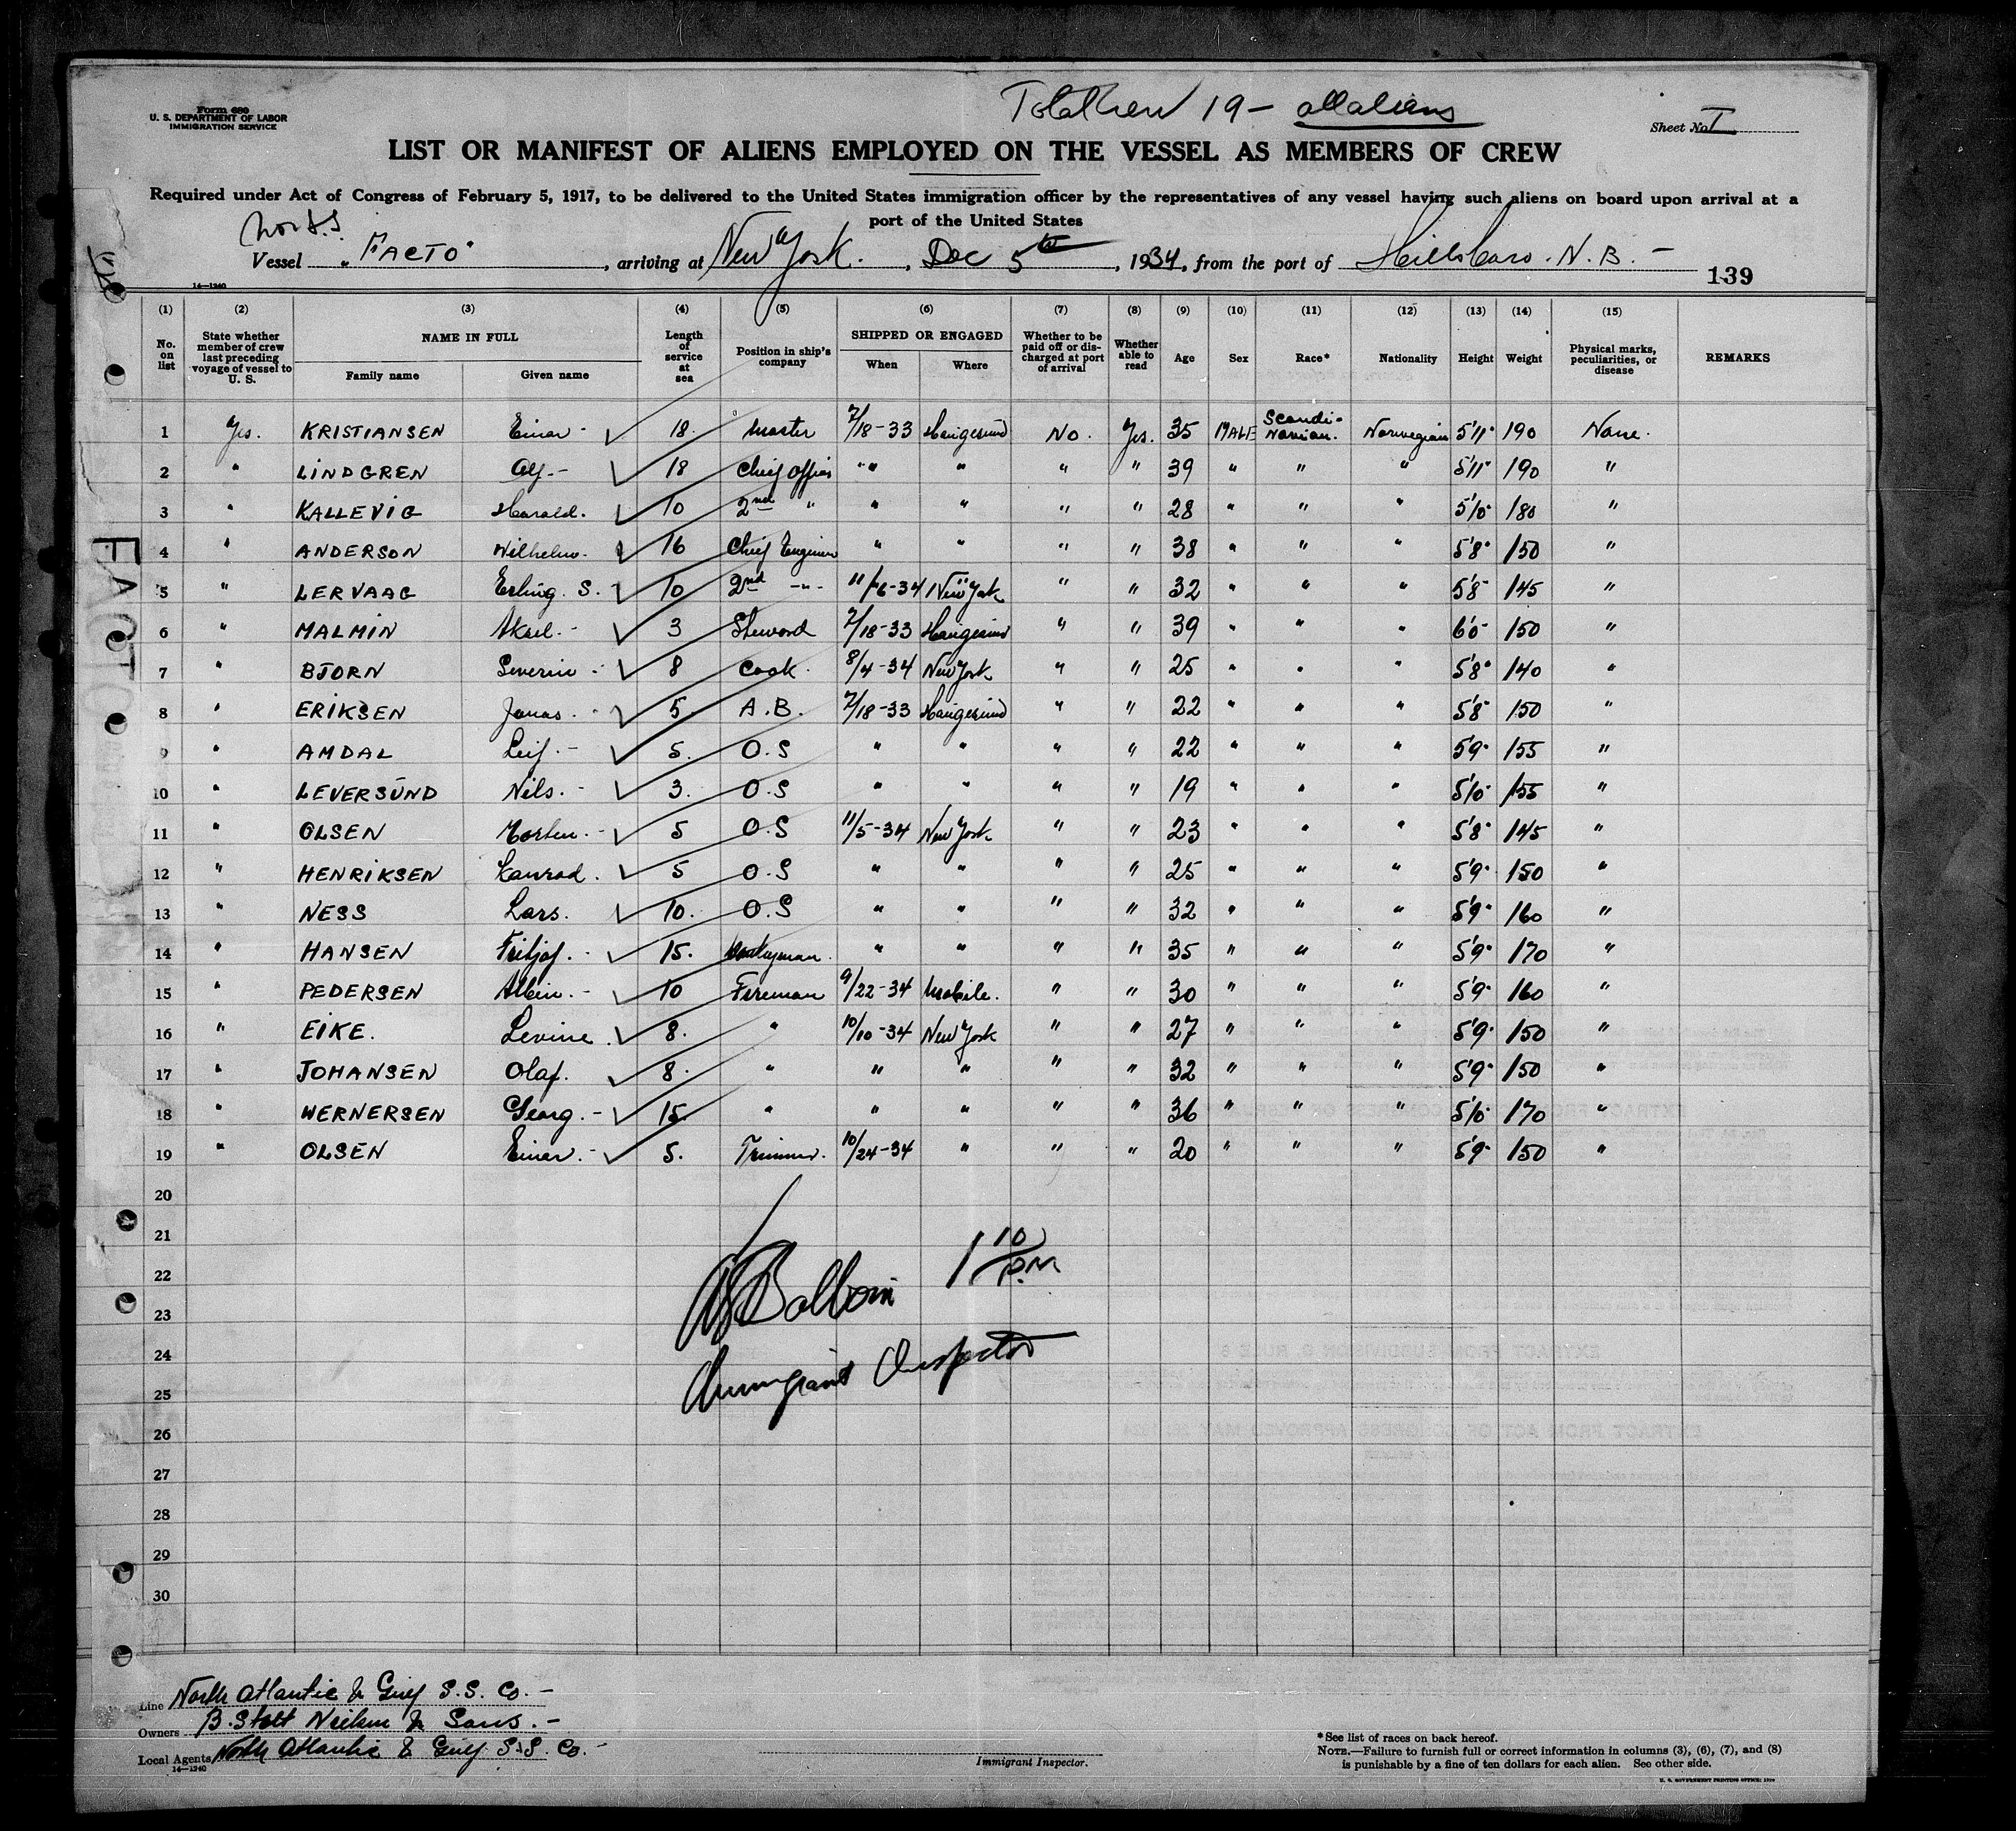 Total Crew 19 - all aliens
Form 680
U. S. DEPARTMENT OF LABOR
IMMIGRATION SERVICE
Sheet No. I
LIST OR MANIFEST OF ALIENS EMPLOYED ON THE VESSEL AS MEMBERS OF CREW
Required under Act of Congress of February 5, 1917, to be delivered to the United States immigration officer by the representatives of any vessel having such aliens on board upon arrival at a
port of the United States
Nor. S.S.
Vessel "FACTO", arriving at New York, Dec 5th, 1934, from the port of Hillsboro. N.B. -
139
14-1240
(1) (2) (3) (4) (5) (6) (7) (8) (9) (10) (11) (12) (13) (14) (15)
No. on list State whether member of crew last preceding voyage of vessel to U. S. NAME IN FULL Family name Given name Length of service at sea Position in ship's company SHIPPED OR ENGAGED When Where Whether to be paid off or discharged at port of arrival Whether able to read Age Sex Race* Nationality Height Weight Physical marks, peculiarities, or disease REMARKS
1 Yes. KRISTIANSEN Einar - 18. Master 7/18-33 Haugesund No. Yes. 35 MALE Scandinavian. Norwegian 5'11" 190 None.
2 " LINDGREN Alf - 18 Chief Officer " " " " 39 " " " 5'11" 190 "
3 " KALLEVIG Harald. 10 2nd " " " " " 28 " " " 5'10" 180 "
4 " ANDERSON Wilhelm. 16 Chief Engineer " " " " 38 " " " 5'8" 150 "
5 " LERVAAG Erling. S. - 10 2nd -"- 11/16-34 New York " " 32 " " " 5'8" 145 "
6 " MALMIN Aksel. - 3 Steward 7/18-33 Haugesund " " 39 " " " 6'0" 150 "
7 " BJORN Severin - 8 Cook. 8/4-34 New York " " 25 " " " 5'8" 140 "
8 " ERIKSEN Jonas. - 5. A.B. 7/18-33 Haugesund " " 22 " " " 5'8" 150 "
9 " AMDAL Leif. - 5. O.S " " " " 22 " " " 5'9" 155 "
10 " LEVERSUND Nils. - 3. O.S " " " " 19 " " " 5'10" 155 "
11 " OLSEN Morten. - 5 O.S 11/5-34 New York " " 23 " " " 5'8" 145 "
12 " HENRIKSEN Konrad. 5 O.S " " " " 25 " " " 5'9" 150 "
13 " NESS Lars. 10. O.S " " " " 32 " " " 5'9" 160 "
14 " HANSEN Fritjof. - 15. Donkeyman. " " " " 35 " " " 5'9" 170 "
15 " PEDERSEN Albin. - 10 Fireman 9/22-34 Mobile. " " 30 " " " 5'9" 160 "
16 " EIKE. Levine. 8. " 10/10-34 New York " " 27 " " " 5'9" 150 "
17 " JOHANSEN Olaf. 8. " " " " " 32 " " " 5'9" 150 "
18 " WERNERSEN Georg. - 15. " " " " " 36 " " " 5'10" 170 "
19 " OLSEN Einar. - 5. Trimmer. 10/24-34 " " " 20 " " " 5'9" 150 "
20
21
22
23
24
25
26
27
28
29
30
1 10 P.M
Immigrant Inspector
FACTO
Line North Atlantic & Gulf S.S. Co. -
Owners B. Stolt Nielsen & Sons. -
Local Agents North Atlantic & Gulf S.S. Co. -
14-1240
Immigrant Inspector.
*See list of races on back hereof.
NOTE.—Failure to furnish full or correct information in columns (3), (6), (7), and (8)
is punishable by a fine of ten dollars for each alien. See other side.